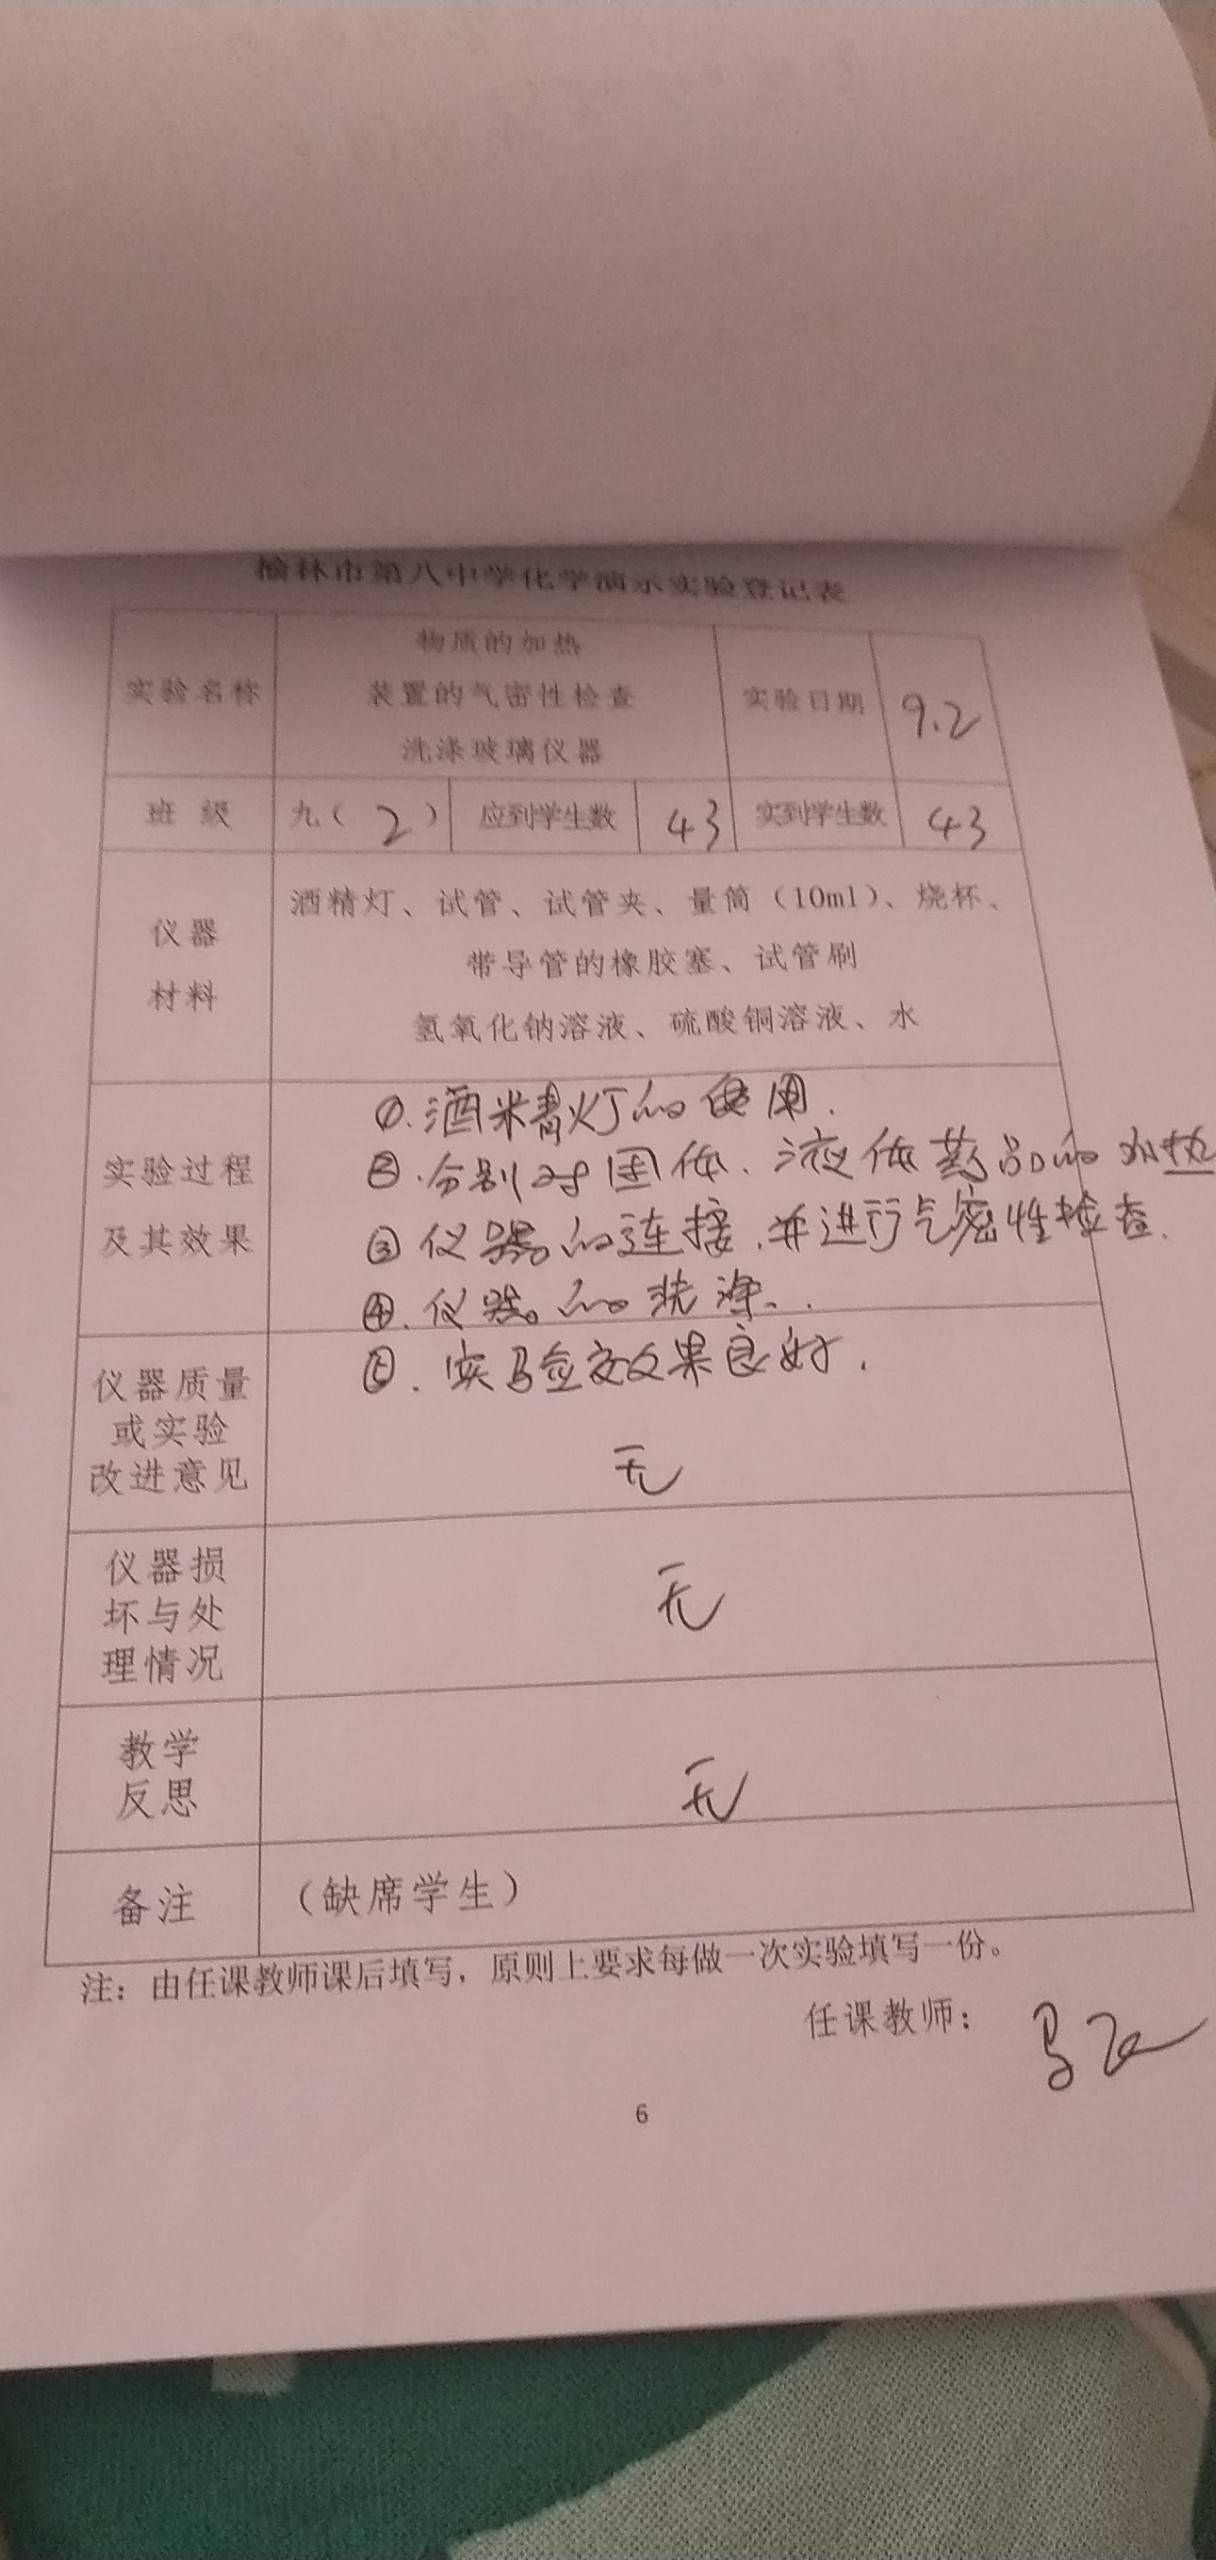 榆林市第八中学化学演示实验登记表
实验名称
物质的加热
装置的气密性检查
洗涤玻璃仪器
实验日期
9.2
班 级
九（ 2 ）
应到学生数
43
实到学生数
43
仪器
材料
酒精灯、试管、试管夹、量筒（10ml）、烧杯、
带导管的橡胶塞、试管刷
氢氧化钠溶液、硫酸铜溶液、水
实验过程
及其效果
①.酒精灯的使用.
②.分别对固体、液体药品的加热
③仪器的连接,并进行气密性检查.
④.仪器的洗涤.
⑤.实验效果良好.
仪器质量
或实验
改进意见
无
仪器损
坏与处
理情况
无
教学
反思
无
备注
（缺席学生）
注：由任课教师课后填写，原则上要求每做一次实验填写一份。
任课教师：
6